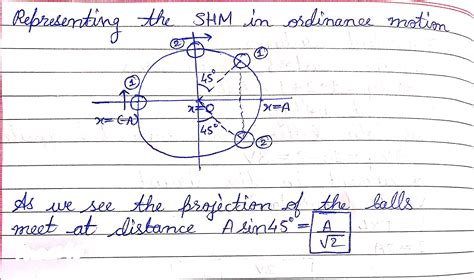 Representing the SHM in ordinance motion
②
①
①
45°
x=(-A)
x=0
x=A
45°
②
As we see the projection of the balls
meet at distance A sin45° = A/√2